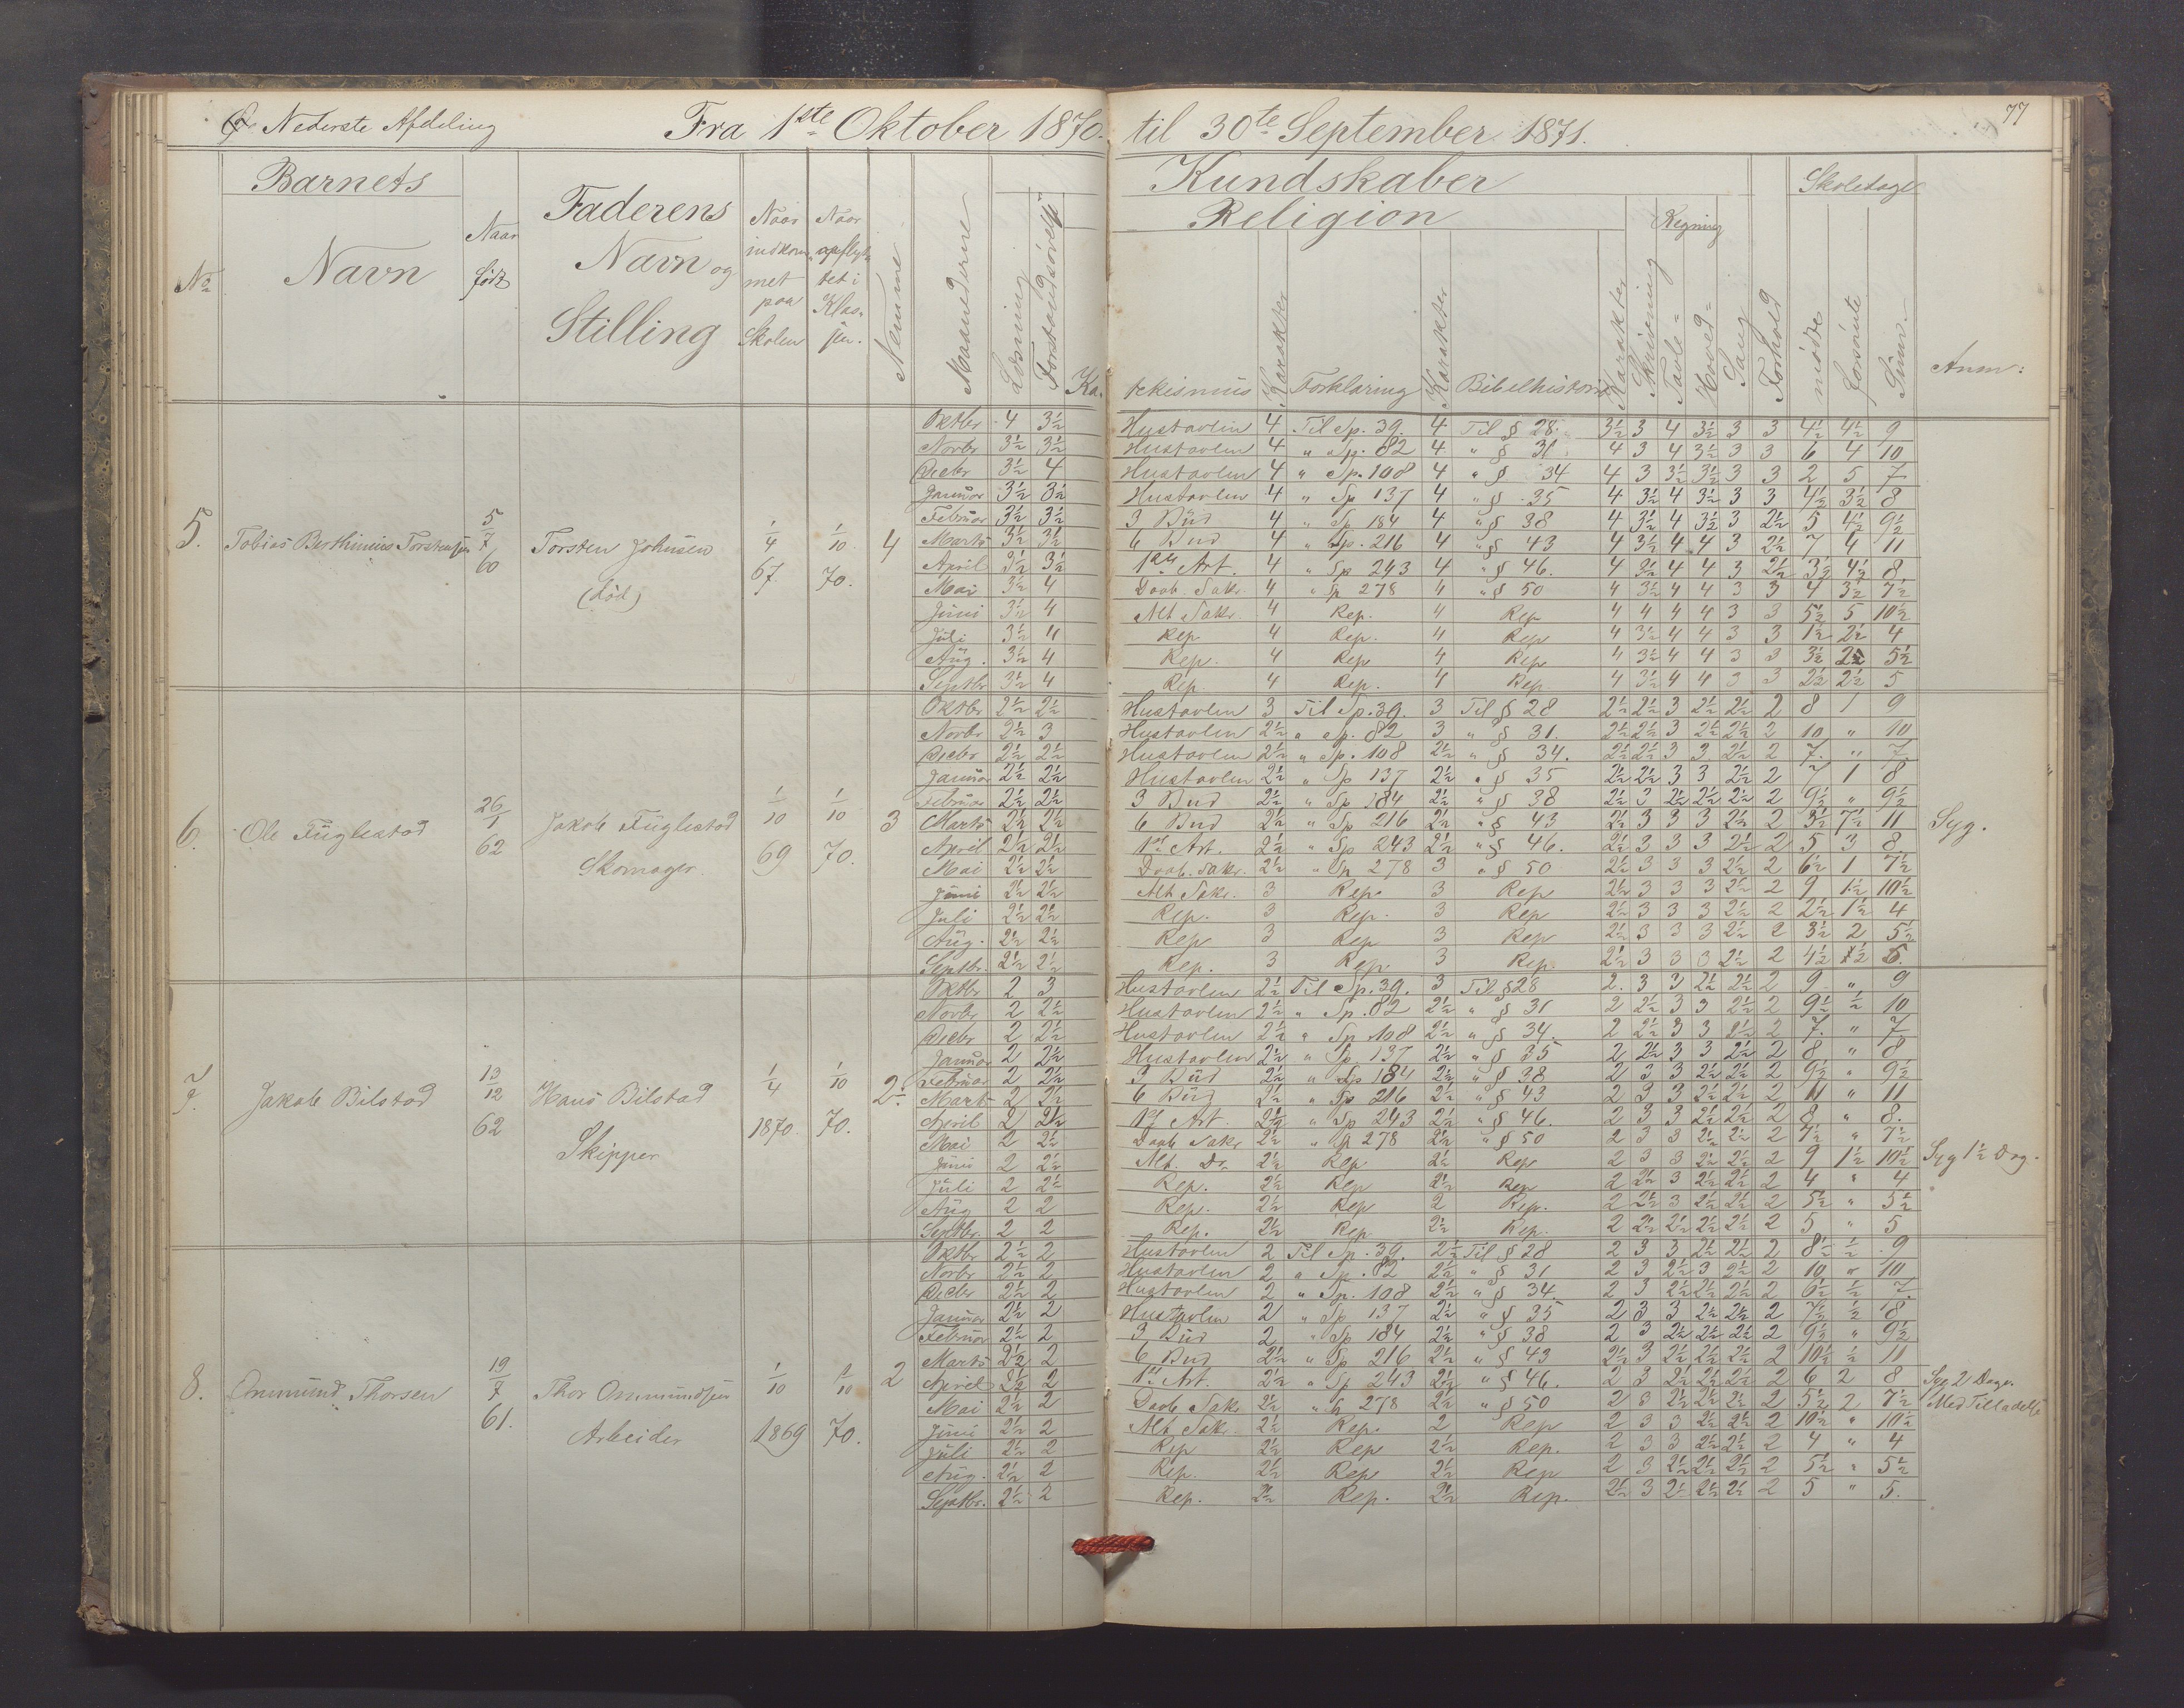 Nederste Afdeling Fra 1ste Oktober 1870. til 30te September 1871. 77
Barnets Kundskaber Skoledage
No Navn Naar født Faderens Navn og Stilling Naar indkommet paa Skolen Naar opflyttet i Klassen. Nemme Maanederne Læsning Forstandsøvelse Religion Regning
Katekismus Karakter Forklaring Karakter Bibelhistorie Karakter Skrivning Tavle= Hoved= Sang Forhold mødte forsømte Sum Anm:
5. Tobias Berthinius Torstensen 5/7 60 Torsten Johnsen (død) 1/4 67. 1/10 70. 4
Oktbr 4 3½ Hustavlen 4 Til Sp. 39. 4 Til § 28. 3½ 3 4 3½ 3 3 4½ 4½ 9
Novbr 3½ 3½ Hustavlen 4 " Sp. 82 4 " § 31. 4 3 4 3½ 3 3 6 4 10
Decbr 3½ 4 Hustavlen 4 " Sp. 108 4 " § 34 4 3 3½ 3½ 3 3 2 5 7
Januar 3½ 3½ Hustavlen 4 " Sp 137 4 " § 35 4 3½ 4 3½ 3 3 4½ 3½ 8
Februar 3½ 3½ 3 Bud 4 " Sp 184 4 " § 38 4 3½ 4 3½ 3 2½ 5 4½ 9½
Marts 3½ 3½ 6 Bud 4 " Sp. 216 4 " § 43 4 3½ 4 4 3 2½ 7 4 11
April 3½ 3½ 1ste Art. 4 " Sp 243 4 " § 46. 4 3½ 4 4 3 2½ 3½ 4½ 8
Mai 3½ 4 Daab. Sakr. 4 " Sp 278 4 " § 50 4 3½ 4 4 3 3 4 3½ 7½
Juni 3½ 4 Alt Sakr. 4 Rep. 4 Rep 4 4 4 4 3 3 5½ 5 10½
Juli 3½ 4 Rep 4 Rep. 4 Rep 4 3½ 4 4 3 3 1½ 2½ 4
Aug. 3½ 4 Rep. 4 Rep 4 Rep 4 3½ 4 4 3 3 3½ 2 5½
Septbr 3½ 4 Rep. 4 Rep. 4 Rep 4 3½ 4 4 3 3 2½ 2½ 5
6. Ole Fuglestad 26/1 62 Jakob Fuglestad Skomager. 1/10 69 1/10 70. 3 Syg.
Oktbr 2½ 2½ Hustavlen 3 Til Sp. 39. 3 Til § 28 2½ 2½ 3 2½ 2½ 2 8 1 9
Novbr 2½ 3 Hustavlen 2½ " Sp. 82 3 " § 31. 2½ 2½ 3 2½ 2½ 2 10 " 10
Decbr 2½ 2½ Hustavlen 2½ " Sp. 108 2½ " § 34. 2½ 2½ 3 3 2½ 2 7. " 7.
Januar 2½ 2½ Hustavlen 2½ " Sp 137 2½ " § 35 2½ 2½ 3 3 2½ 2 7 1 8
Februar 2½ 2½ 3 Bud 2½ " Sp 184 2½ " § 38 2½ 3 2½ 2½ 2½ 2 9½ " 9½
Marts 2½ 2½ 6 Bud 2½ " Sp 216 2½ " § 43 2½ 3 3 3 2½ 2 3½ 7½ 11
April 2½ 2½ 1ste Art. 2½ " Sp 243 2½ " § 46. 2½ 3 3 3 2½ 2 5 3 8
Mai 2½ 2½ Daab. Sakr. 2½ " Sp 278 3 " § 50 2½ 3 3 3 2½ 2 6½ 1 7½
Juni 2½ 2½ Alt Sakr. 3 Rep. 3 Rep 2½ 3 3 3 2½ 2 9 1½ 10½
Juli 2½ 2½ Rep. 3 Rep. 3 Rep 2½ 3 3 3 2½ 2 2½ 1½ 4
Aug. 2½ 2½ Rep 3 Rep 3 Rep 2½ 3 3 3 2½ 2 3½ 2 5½
Septbr. 2½ 2½ Rep. 3 Rep. 3 Rep. 2½ 3 3 3 2½ 2 4½ ½ 5.
7. Jakob Bilstad 13/12 62 Hans Bilstad Skipper 1/4 1870. 1/10 70. 2÷
Oktbr 2 3 Hustavlen 2½ Til Sp. 39. 3 Til § 28 2. 3 3 2½ 2½ 2 9 " 9
Novbr 2 2½ Hustavlen 2½ " Sp. 82 2½ " § 31 2 2½ 3 3 2½ 2 9½ ½ 10
Decbr 2 2½ Hustavlen 2½ " Sp 108 2½ " § 34. 2 2½ 3 3 2½ 2 7. " 7
Januar 2 2½ Hustavlen 2½ " Sp. 137 2½ " § 35 2 2½ 3 3 2½ 2 8 " 8
Februar 2 2½ 3 Bud 2½ " Sp 184 2½ " § 38 2 3 3 2½ 2½ 2 9½ " 9½
Marts 2 2½ 6 Bud 2½ " Sp 216 2½ " § 43 2 3 3 2½ 2½ 2 11 " 11
April 2 2½ 1ste Art. 2½ " Sp 243 2½ " § 46. 2 3 3 2½ 2½ 2 8 " 8.
Mai 2 2½ Daab Sakr 2½ " Sp 278 2½ " § 50 2 3 3 2½ 2½ 2 7½ " 7½
Juni 2 2½ Alt. Do. 2½ Rep 2½ Rep 2 3 3 2½ 2½ 2 9 1½ 10½ Syg 1½ Dag.
Juli 2 2½ Rep. 2½ Rep 2½ Rep 2 2½ 3 2½ 2½ 2 4 " 4
Aug 2 2 Rep. 2½ Rep 2 Rep. 2 2½ 3 2½ 2½ 2 5½ " 5½
Septbr. 2 2 Rep. 2½ Rep 2½ Rep. 2 2½ 2½ 2½ 2½ 2 5 " 5
8. Ommund Thorsen 19/7 61. Thor Ommundsen Arbeider 1/10 1869 1/10 70. 2
Oktbr 2½ 2 Hustavlen 2 Til Sp. 39. 2½ Til § 28 2 3 3 2½ 2½ 2 8½ ½ 9
Novbr 2½ 2 Hustavlen 2 " Sp. 82 2½ " § 31 2 3 2½ 3 2½ 2 10 " 10
Decbr 2½ 2 Hustavlen 2 " Sp. 108 2½ " § 34. 2 3 2½ 2½ 2½ 2 6½ ½ 7.
Januar 2½ 2 Hustavlen 2 " Sp 137 2½ " § 35 2 3 3 2½ 2½ 2 7½ ½ 8
Februar 2½ 2 3 Bud 2 " Sp 184 2½ " § 38 2 3 2½ 2½ 2½ 2 9½ " 9½
Marts 2½ 2 6 Bud 2½ " Sp 216 2½ " § 43 2½ 3 2½ 2½ 2½ 2 10½ ½ 11
April 2½ 2 1ste Art. 2½ " Sp 243 2½ " § 46. 2 3 2½ 2½ 2½ 2 6 2 8 Syg 2 Dage.
Mai 2½ 2 Daab Sakr 2½ " Sp 278 2½ " § 50 2 3 2½ 2½ 2½ 2 5½ 2 7½ Med Tilladelse
Juni 2½ 2 Alt Sakr. 2½ Rep. 2 Rep 2 3 3 2½ 2½ 2 10½ " 10½
Juli 2½ 2 Rep 2½ Rep 2½ Rep. 2 3 3 2½ 2½ 2 4 " 4
Aug. 2½ 2 Rep. 2½ Rep 2½ Rep 2 3 2½ 2½ 2½ 2 5½ " 5½
Septbr. 2½ 2 Rep. 2½ Rep. 2½ Rep. 2½ 3 2½ 2½ 2½ 2 5 " 5.